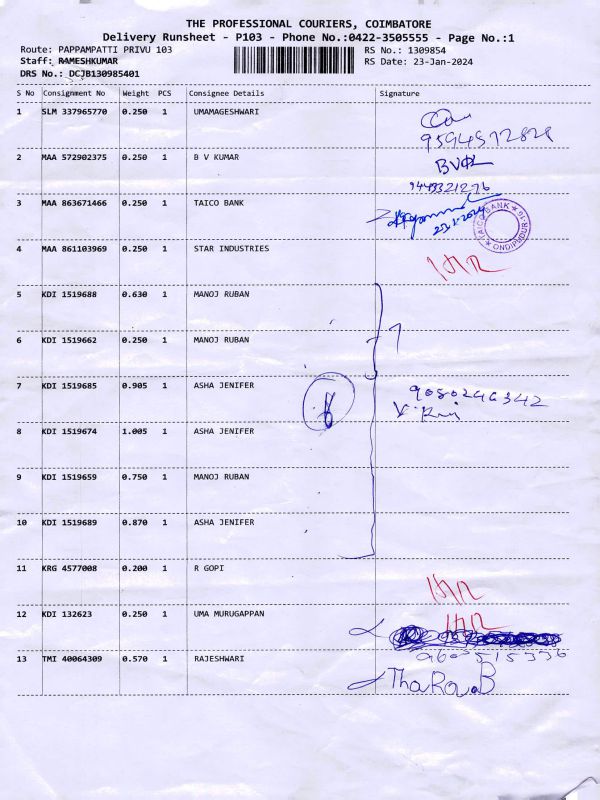 THE PROFESSIONAL COURIERS, COIMBATORE
Delivery Runsheet - P103 - Phone No.:0422-3505555 - Page No.:1
Route: PAPPAMPATTI PRIVU 103 RS No.: 1309854
Staff: RAMESHKUMAR RS Date: 23-Jan-2024
DRS No.: DCJB130985401
S No Consignment No Weight PCS Consignee Details Signature
1 SLM 337965770 0.250 1 UMAMAGESHWARI
2 MAA 572902375 0.250 1 B V KUMAR
9443321276
3 MAA 863671466 0.250 1 TAICO BANK
TAICO BANK ONDIPUDUR-16
4 MAA 861103969 0.250 1 STAR INDUSTRIES
5 KDI 1519688 0.630 1 MANOJ RUBAN
6 KDI 1519662 0.250 1 MANOJ RUBAN
7 KDI 1519685 0.905 1 ASHA JENIFER
9080246342
8 KDI 1519674 1.005 1 ASHA JENIFER
9 KDI 1519659 0.750 1 MANOJ RUBAN
10 KDI 1519689 0.870 1 ASHA JENIFER
11 KRG 4577008 0.200 1 R GOPI
12 KDI 132623 0.250 1 UMA MURUGAPPAN
13 TMI 40064309 0.570 1 RAJESHWARI